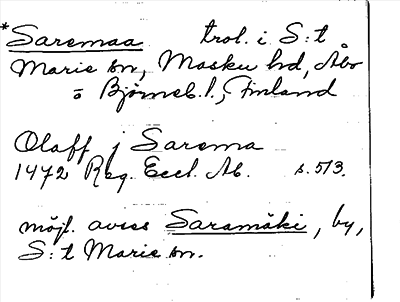 * Saremaa trol. i S:t
Marie sn, Masku hd, Åbo
o Björneb. l., Finland
Olaff j Sarema
1472 Reg. Eccl. Ab. s. 513.
möjl. avses Saramäki, by,
S:t Marie sn.